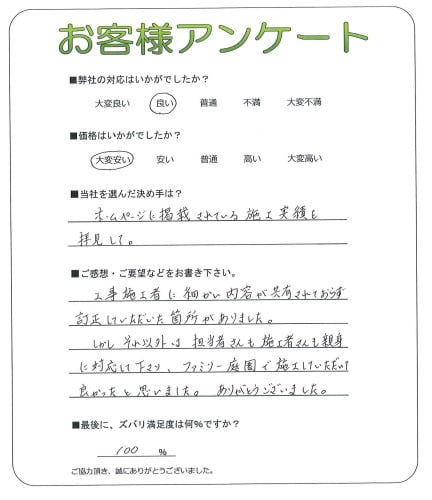 お客様アンケート
■弊社の対応はいかがでしたか？
大変良い 良い 普通 不満 大変不満
■価格はいかがでしたか？
大変安い 安い 普通 高い 大変高い
■当社を選んだ決め手は？
ホームページに掲載されている施工実績を
拝見して。
■ご感想・ご要望などをお書き下さい。
工事施工者に細かい内容が共有されておらず
訂正していただいた箇所がありました。
しかしそれ以外は担当者さんも施工者さんも親身
に対応して下さり、ファミリー庭園で施工していただいて
良かったと思いました。ありがとうございました。
■最後に、ズバリ満足度は何％ですか？
100 ％
ご協力頂き、誠にありがとうございました。